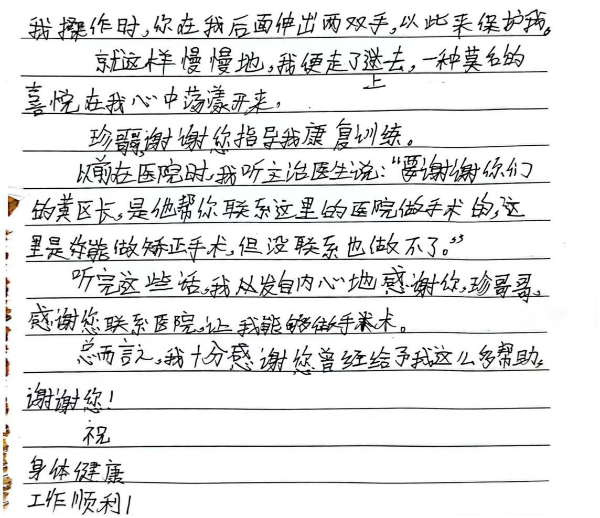 我操作时,你在我后面伸出两双手,以此来保护我。
就这样慢慢地,我便走了上去,一种莫名的
喜悦在我心中荡漾开来。
珍哥,谢谢您指导我康复训练。
以前在医院时,我听主治医生说:“要谢谢你们
的黄区长,是他帮你联系这里的医院做手术的,这
里是能做矫正手术,但没联系也做不了。”
听完这些话,我从发自内心地感谢你,珍哥哥。
感谢您联系医院,让我能够做手术。
总而言之,我十分感谢您曾经给予我这么多帮助。
谢谢您!
祝
身体健康
工作顺利!